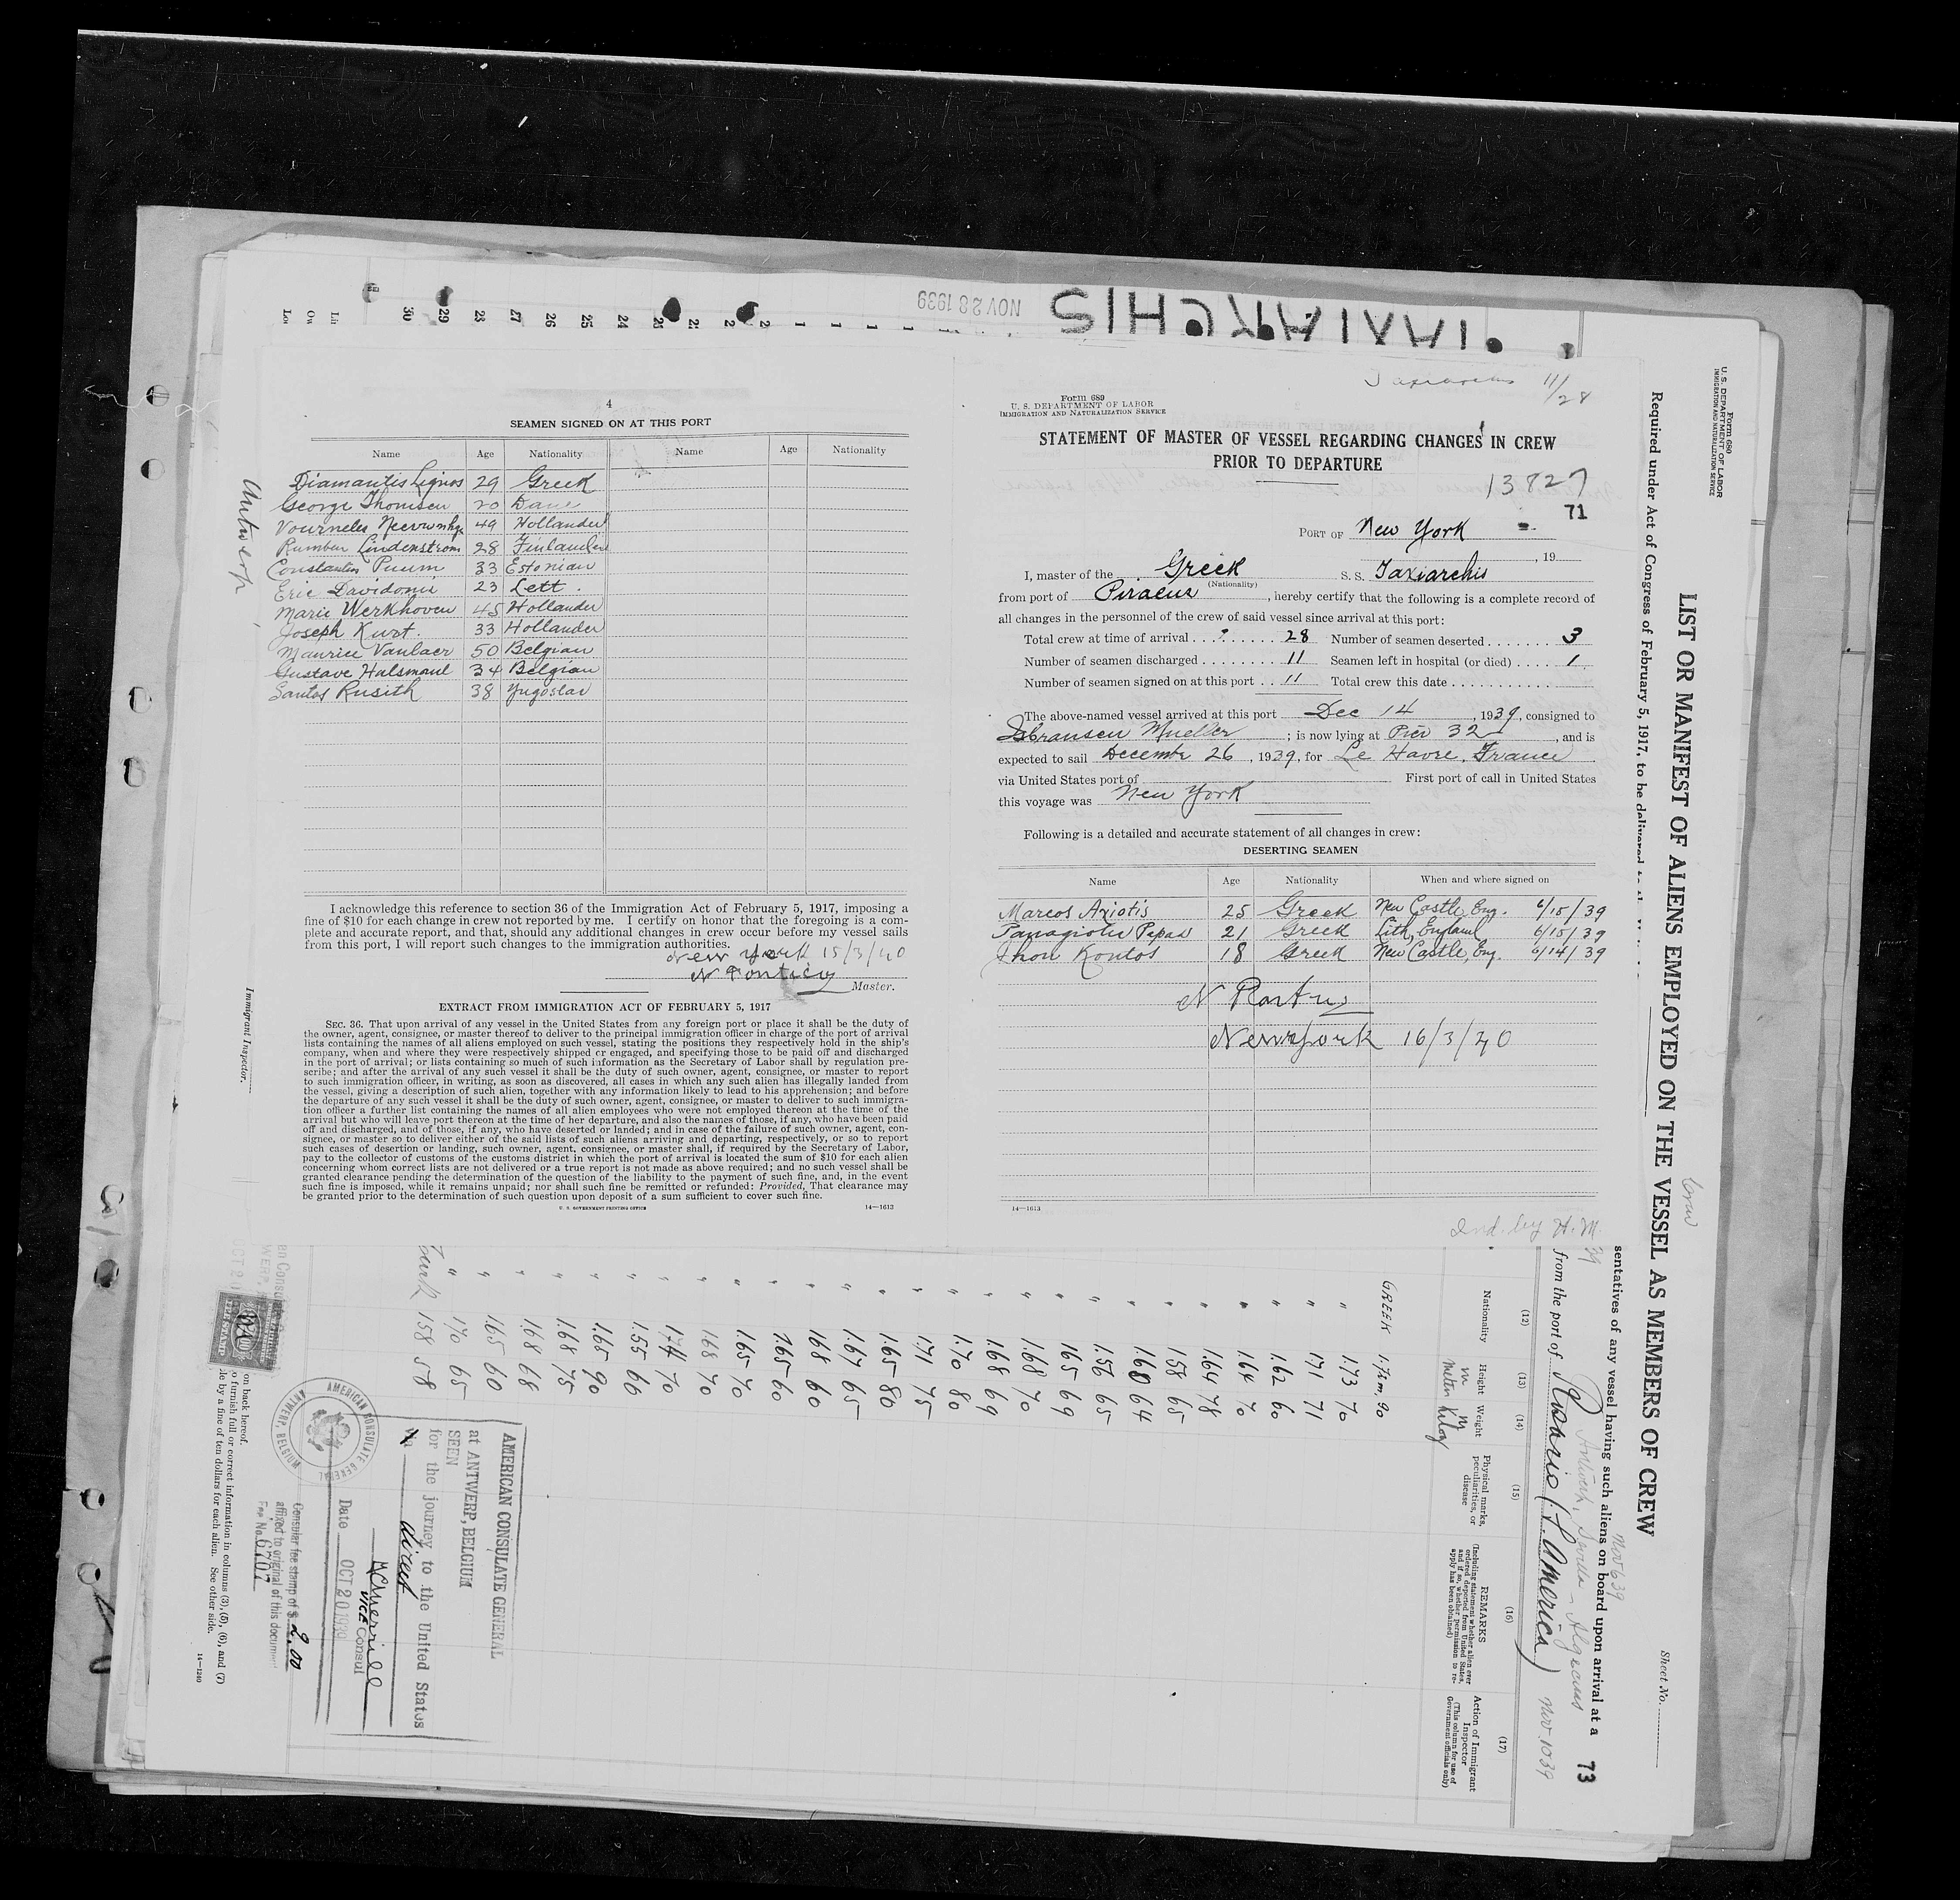 NOV 28 1939
TAXIARCHIS
30 29 28 27 26 25 24
4
SEAMEN SIGNED ON AT THIS PORT
Name Age Nationality Name Age Nationality
Diamantis Lignos 29 Greek
George Thomsen 20 Dane
49 Hollander
Lindenstrom 28 Finlander
Constantin Puum 33 Estonian
Eric Davidonis 23 Lett.
Marie Werkhoven 45 Hollander
Joseph Kurt. 33 Hollander
Maurice Vanlaer 50 Belgian
Gustave Halsmaul 34 Belgian
Santos Rusith 38 Yugoslav
Antwerp
I acknowledge this reference to section 36 of the Immigration Act of February 5, 1917, imposing a
fine of $10 for each change in crew not reported by me. I certify on honor that the foregoing is a com-
plete and accurate report, and that, should any additional changes in crew occur before my vessel sails
from this port, I will report such changes to the immigration authorities.
New York 15/3/40
Master.
Immigrant Inspector.
EXTRACT FROM IMMIGRATION ACT OF FEBRUARY 5, 1917
SEC. 36. That upon arrival of any vessel in the United States from any foreign port or place it shall be the duty of
the owner, agent, consignee, or master thereof to deliver to the principal immigration officer in charge of the port of arrival
lists containing the names of all aliens employed on such vessel, stating the positions they respectively hold in the ship's
company, when and where they were respectively shipped or engaged, and specifying those to be paid off and discharged
in the port of arrival; or lists containing so much of such information as the Secretary of Labor shall by regulation pre-
scribe; and after the arrival of any such vessel it shall be the duty of such owner, agent, consignee, or master to report
to such immigration officer, in writing, as soon as discovered, all cases in which any such alien has illegally landed from
the vessel, giving a description of such alien, together with any information likely to lead to his apprehension; and before
the departure of any such vessel it shall be the duty of such owner, agent, consignee, or master to deliver to such immigra-
tion officer a further list containing the names of all alien employees who were not employed thereon at the time of the
arrival but who will leave port thereon at the time of her departure, and also the names of those, if any, who have been paid
off and discharged, and of those, if any, who have deserted or landed; and in case of the failure of such owner, agent, con-
signee, or master so to deliver either of the said lists of such aliens arriving and departing, respectively, or so to report
such cases of desertion or landing, such owner, agent, consignee, or master shall, if required by the Secretary of Labor,
pay to the collector of customs of the customs district in which the port of arrival is located the sum of $10 for each alien
concerning whom correct lists are not delivered or a true report is not made as above required; and no such vessel shall be
granted clearance pending the determination of the question of the liability to the payment of such fine, and, in the event
such fine is imposed, while it remains unpaid; nor shall such fine be remitted or refunded: Provided, That clearance may
be granted prior to the determination of such question upon deposit of a sum sufficient to cover such fine.
U. S. GOVERNMENT PRINTING OFFICE 14—1613
Taxiarchis 11/28
Form 689
U. S. DEPARTMENT OF LABOR
IMMIGRATION AND NATURALIZATION SERVICE
STATEMENT OF MASTER OF VESSEL REGARDING CHANGES IN CREW
PRIOR TO DEPARTURE
13827
71
PORT OF New York
, 19
I, master of the Greek S. S. Taxiarchis
(Nationality)
from port of Piraeus, hereby certify that the following is a complete record of
all changes in the personnel of the crew of said vessel since arrival at this port:
Total crew at time of arrival . . ? . . . . . 28 Number of seamen deserted . . . . . . . 3
Number of seamen discharged . . . . . . . . 11 Seamen left in hospital (or died) . . . . 1
Number of seamen signed on at this port . . 11 Total crew this date . . . . . . . . . . .
The above-named vessel arrived at this port Dec 14, 1939, consigned to
Mueller; is now lying at Pier 32, and is
expected to sail December 26, 1939, for Le Havre, France
via United States port of First port of call in United States
this voyage was New York
Following is a detailed and accurate statement of all changes in crew:
DESERTING SEAMEN
Name Age Nationality When and where signed on
Marcos Axiotis 25 Greek New Castle, Eng. 6/15/39
Panagiotu Papas 21 Greek Lith, England 6/15/39
Jhon Kontos 18 Greek New Castle, Eng. 6/14/39
New york 16/3/40
14—1613
Ind. by H. M.
Form 680
U. S. DEPARTMENT OF LABOR
IMMIGRATION AND NATURALIZATION SERVICE
LIST OR MANIFEST OF ALIENS EMPLOYED ON THE VESSEL AS MEMBERS OF CREW
Required under Act of Congress of February 5, 1917, to be delivered
sentatives of any vessel having such aliens on board upon arrival at a
Sheet No.
from the port of Rosario (S. America) Nov. 10 39
Antwerp, Sevilla - Algeciras
Nov 6 39
73
(12) (13) (14) (15) (16) (17)
Nationality
Height in Meters
Weight in Kilog
Physical marks, peculiarities, or disease
REMARKS
(Including statement whether alien ever ordered deported from United States, and if so, whether permission to re-apply has been obtained)
Action of Immigrant Inspector
(This column for use of Government officials only)
GREEK 1.75m, 90
" 1.73 70
" 171 71
" 1.62 60
" 1.64 70
" 1.64 78
" 1.58 65
" 1.60 64
" 1.56 65
" 165 69
" 1.68 70
" 1.68 69
" 1.70 80
" 1.71 75
" 1.65 80
" 1.67 65
" 168 60
" 1.65 60
" 1.65 70
" 168 70
" 174 70
" 1.55 60
" 1.65 90
" 1.68 75
" 1.68 68
" 1.65 60
" 170 65
Turk 158 58
AMERICAN CONSULATE GENERAL
at ANTWERP, BELGIUM
SEEN
for the journey to the United States
via direct
Vice Consul
Date OCT 20 1939
AMERICAN CONSULATE GENERAL
ANTWERP, BELGIUM
Consular fee stamp of $ 2.00
affixed to original of this document
Fee No. 6707
on back hereof.
o furnish full or correct information in columns (3), (5), (6), and (7)
le by a fine of ten dollars for each alien. See other side.
14—1240